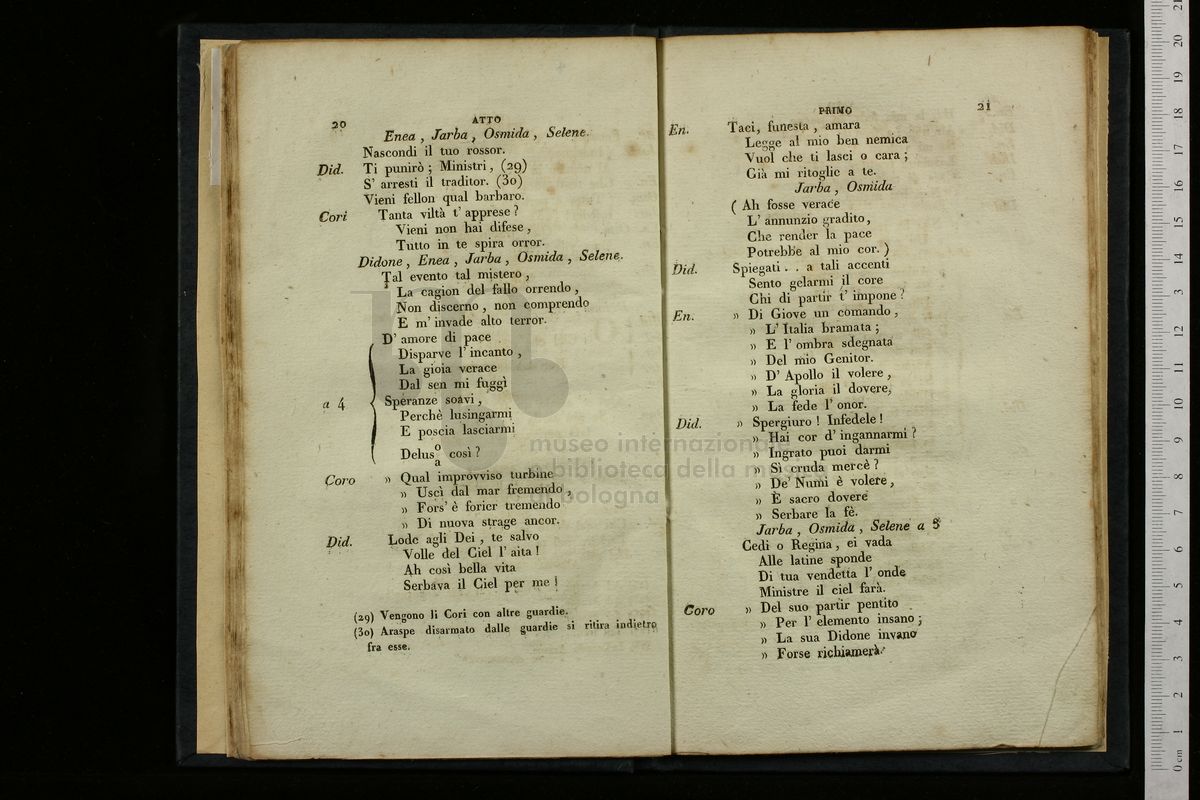 20 ATTO
Enea , Jarba , Osmida , Selene.
Nascondi il tuo rossor.
Did. Ti punirò ; Ministri , (29)
S' arresti il traditor. (30)
Vieni fellon qual barbaro.
Cori Tanta viltà t' apprese ?
Vieni non hai difese ,
Tutto in te spira orror.
Didone , Enea , Jarba , Osmida , Selene.
Tal evento tal mistero ,
La cagion del fallo orrendo ,
Non discerno , non comprendo
E m' invade alto terror.
D' amore di pace
Disparve l' incanto ,
La gioia verace
Dal sen mi fuggì
a 4 Speranze soavi ,
Perchè lusingarmi
E poscia lasciarmi
Delus o a così ?
Coro » Qual improvviso turbine
» Uscì dal mar fremendo ,
» Fors' è forier tremendo
» Di nuova strage ancor.
Did. Lode agli Dei , te salvo
Volle del Ciel l' aita !
Ah così bella vita
Serbava il Ciel per me !
(29) Vengono li Cori con altre guardie.
(30) Araspe disarmato dalle guardie si ritira indietro
fra esse.
PRIMO 21
En. Taci, funesta , amara
Legge al mio ben nemica
Vuol che ti lasci o cara ;
Già mi ritoglie a te.
Jarba , Osmida
( Ah fosse verace
L' annunzio gradito ,
Che render la pace
Potrebbe al mio cor. )
Did. Spiegati . . a tali accenti
Sento gelarmi il core
Chi di partir t' impone ?
En. » Di Giove un comando ,
» L' Italia bramata ;
» E l' ombra sdegnata
» Del mio Genitor.
» D' Apollo il volere ,
» La gloria il dovere,
» La fede l' onor.
Did. » Spergiuro ! Infedele !
» Hai cor d' ingannarmi ?
» Ingrato puoi darmi
» Sì cruda mercè ?
» De' Numi è volere ,
» È sacro dovere
» Serbare la fè.
Jarba , Osmida , Selene a 3
Cedi o Regina , ei vada
Alle latine sponde
Di tua vendetta l' onde
Ministre il ciel farà.
Coro » Del suo partir pentito
» Per l' elemento insano ;
» La sua Didone invano
» Forse richiamerà.
museo internazionale
e biblioteca della musica
di bologna